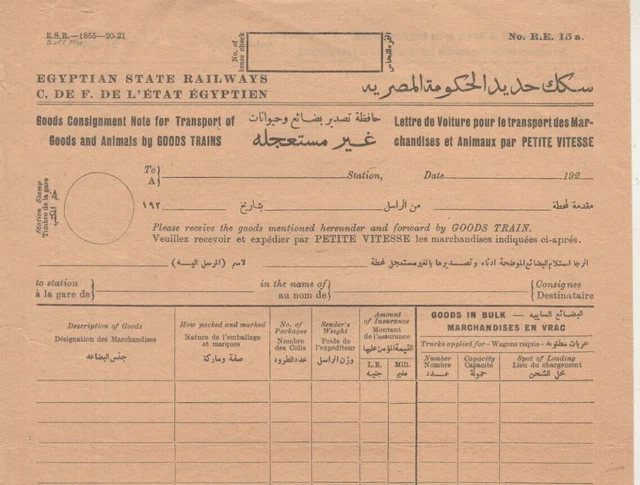 E.S.R.—1855—20-21
No. of tems check
نمرة النحاس
No. R.E. 15 a.
EGYPTIAN STATE RAILWAYS
سكك حديد الحكومة المصريه
C. DE F. DE L'ÉTAT ÉGYPTIEN
Goods Consignment Note for Transport of
حافظة تصدير بضائع وحيوانات
Lettre de Voiture pour le transport des Mar-
Goods and Animals by GOODS TRAINS
غير مستعجله
chandises et Animaux par PETITE VITESSE
Station Stamp
Timbre de la gare
ختم المكتب
To
A
Station,
Date
192
مقدمة لمحطة
من الراسل
بتاريخ
١٩٢
Please receive the goods mentioned hereunder and forward by GOODS TRAIN.
Veuillez recevoir et expédier par PETITE VITESSE les marchandises indiquées ci-aprés.
الرجا استلام البضائع الموضحة ادناه وتصديرها بالغير مستعجل لمحطة
لاسم (المرسل اليه)
to station
à la gare de
in the name of
au nom de
Consignee
Destinataire
Description of Goods
Désignation des Marchandises
جنس البضاعه
How packed and marked
Nature de l'emballage
et marques
صفة وماركة
No. of
Packages
Nombre
des Colis
عدد الطرود
Sender's
Weight
Poids de
l'expéditeur
وزن الراسل
Amount
of Insurance
Montant
de l'assurance
القيمة المؤمن عليها
L.E.
جنيه
Mill.
مليم
GOODS IN BULK — البضائع السايبه
MARCHANDISES EN VRAC
Trucks applied for - Wagons requis - عربات مطلوبه
Number
Nombre
عدد
Capacity
Capacité
حمولة
Spot of Loading
Lieu du chargement
محل الشحن